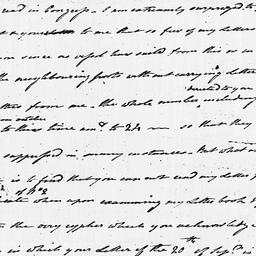 read in Congress - I am extremely surprized to
to me that so few of my letters
since as no vessel has sailed from this or in
the neighbouring ports without carrying letter
directed to you
from me - the whole number including
to this time am.t to 22 so that they
suppressed in many instances. - But what
is to find that you can not read my letter
of No 2
when upon examining my letter book I
the very cypher which you acknowledge
in which your Letter of the 20th of Sep.r is